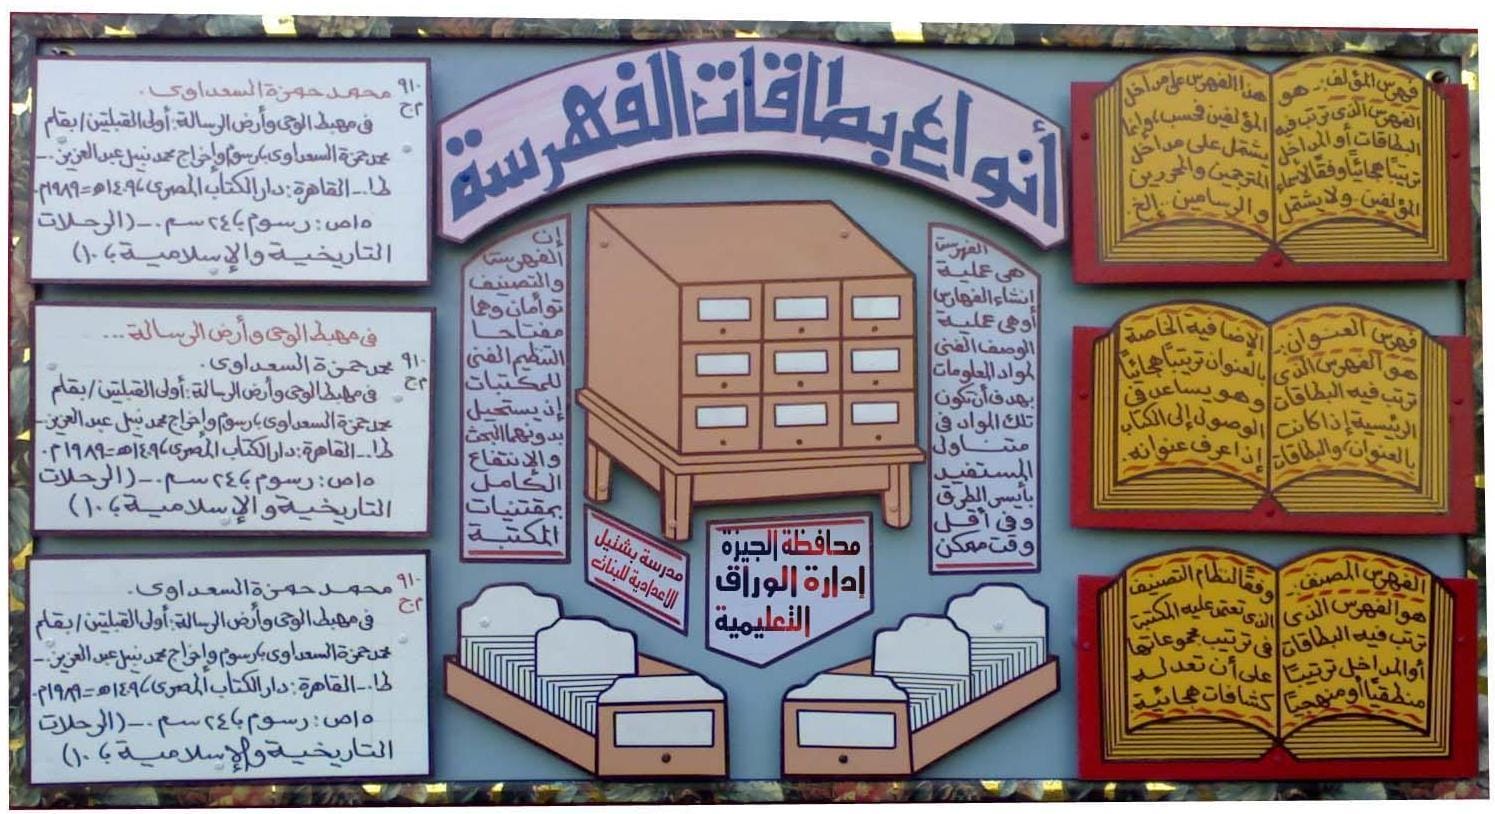 أنواع بطاقات الفهرسة
فهرس المؤلف:- هو
الفهرس الذى ترتب فيه
البطاقات أو المداخل
ترتيبًا هجائيًا وفقًا لأسماء
المؤلفين. ولا يشتمل
هذا الفهرس على مداخل
المؤلفين فحسب، وإنما
يشتمل على مداخل
المترجمين والمحررين
والرسامين.. إلخ.
فهرس العنوان:-
هو الفهرس الذى
ترتب فيه البطاقات
الرئيسية إذا كانت
بالعنوان، والبطاقات
الإضافية الخاصة
بالعنوان ترتيبًا هجائيًا
وهو يساعد فى
الوصول إلى الكتاب
إذا عرف عنوانه.
الفهرس المصنف:
هو الفهرس الذى
ترتب فيه البطاقات
أو المداخل ترتيبًا
منطقيًا أو منهجيًا
وفقًا لنظام التصنيف
الذى تعتمد عليه المكتبة
فى ترتيب مجموعاتها
على أن تعد له
كشافات هجائية
الفهرسة
هى عملية
إنشاء الفهارس
أو هى عملية
الوصف الفنى
لمواد المعلومات
بهدف أن تكون
تلك المواد فى
متناول
المستفيد
بأيسر الطرق
وفى أقل
وقت ممكن
إن
الفهرسة
والتصنيف
توأمان وهما
مفتاحا
التنظيم الفنى
للمكتبات
إذ يستحيل
بدونهما البحث
والإنتفاع
الكامل
بمقتنيات
المكتبة
محافظة الجيزة
إدارة الوراق
التعليمية
مدرسة بشتيل
الاعدادية للبنات
٩١٠ محمد حمزة السعداوى.
م ح
فى مهبط الوحى وأرض الرسالة: أولى القبلتين / بقلم
محمد حمزة السعداوى، رسوم وإخراج محمد نبيل عبد العزيز.ـ
ط١.ـ القاهرة: دار الكتاب المصرى، ١٤٠٩هـ = ١٩٨٩م.
١٥ص: رسوم، ٢٤ سم.ـ (الرحلات
التاريخية والإسلامية، ١٠)
فى مهبط الوحى وأرض الرسالة...
٩١٠ محمد حمزة السعداوى.
م ح
فى مهبط الوحى وأرض الرسالة: أولى القبلتين / بقلم
محمد حمزة السعداوى، رسوم وإخراج محمد نبيل عبد العزيز.ـ
ط١.ـ القاهرة: دار الكتاب المصرى، ١٤٠٩هـ = ١٩٨٩م.
١٥ص: رسوم، ٢٤ سم.ـ (الرحلات
التاريخية والإسلامية، ١٠)
٩١٠ محمد حمزة السعداوى.
م ح
فى مهبط الوحى وأرض الرسالة: أولى القبلتين / بقلم
محمد حمزة السعداوى، رسوم وإخراج محمد نبيل عبد العزيز.ـ
ط١.ـ القاهرة: دار الكتاب المصرى، ١٤٠٩هـ = ١٩٨٩م.
١٥ص: رسوم، ٢٤ سم.ـ (الرحلات
التاريخية والإسلامية، ١٠)